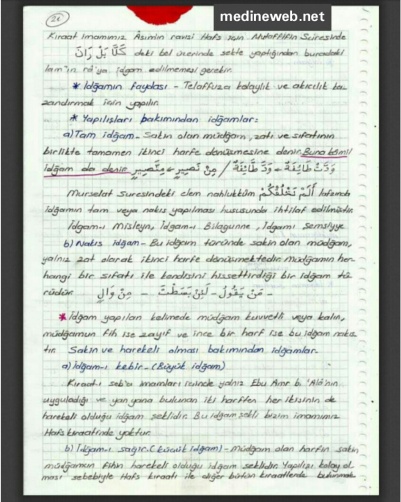 medineweb.net
28
Kıraat İmamımız Asım'ın ravisi Hafs için Mutaffifin Suresinde
كَلَّا بَلْ رَانَ deki bel üzerinde sekte yaptığından buradaki
lam'ın râ'ya idgam edilmemesi gerekir.
* İdğamın faydası - Telaffuza kolaylık ve akıcılık ka-
zandırmak için yapılır.
* Yapılışları bakımından idğamlar:
a) Tam idğam - Sakin olan müdğam, zatı ve sıfatının
birlikte tamamen ikinci harfe dönüşmesine denir. Buna kâmil
idğam da denir. وَدَّتْ طَائِفَةٌ - وَدَّ طَائِفَةٌ / مِنْ نَصِيرٍ - مِنَّصِيرٍ
Murselat Suresindeki elem nahlukkum أَلَمْ نَخْلُقْكُمْ lafzında
idğamın tam veya nakıs yapılması hususunda ihtilaf edilmiştir.
İdgam-ı Misleyn, İdgam-ı Bilagunne, İdgamı Şemsiyye
b) Nakıs idgam - Bu idğam türünde sakin olan müdğam,
yalnız zat olarak ikinci harfe dönüşmektedir. Müdğamın her-
hangi bir sıfatı ile kendisini hissettirdiği bir idgam tü-
rüdür. - مَنْ يَقُولُ - لَئِنْ بَسَطْتَ - مِنْ وَالٍ
* İdğam yapılan kelimede müdğam kuvvetli veya kalın,
müdğamun fih ise zayıf ve ince bir harf ise bu idğam nakıs-
tır. Sakin ve harekeli olması bakımından idğamlar.
a) İdgam-ı kebir - (Büyük idğam)
Kıraat-ı seb'a imamları içinde yalnız Ebu Amr b. 'Alâ'nın
uyguladığı ve yan yana bulunan iki harften her ikisinin de
harekeli olduğu idğam şeklidir. Bu idğam şekli bizim imamımız
Hafs kıraatinde yoktur.
b) İdgam-ı sağir (küçük idgam) - Müdğam olan harfin sakin
müdğamun fihin harekeli olduğu idğam şeklidir. Yapılışı kolay ol-
ması sebebiyle Hafs kıraatı ile diğer bütün kıraatlerde bulunmak